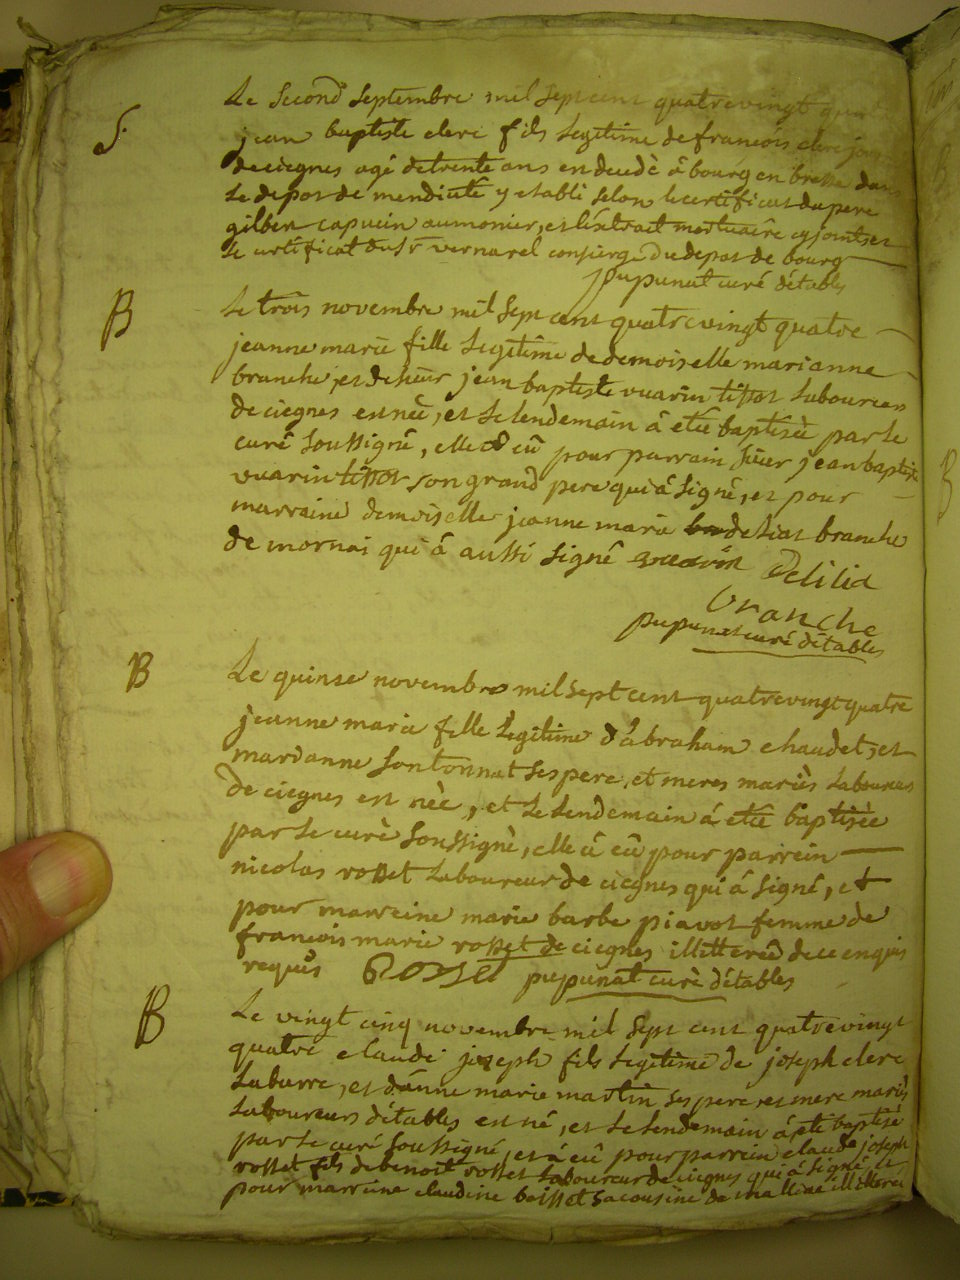 S.
Le second septembre mil sept cent quatre vingt
jean baptiste clerc fils legitime de francois clerc
de ciegnes agé de trente ans en decedé â bourg en bresse dans
le depot de mendicité y etabli selon le certificat du pere
gilbert capucin aumonier, et l'extrait mortuaire cy joints et
le certificat du Sr vernarel consierge du depot de bourg
pupunat curé détables
B
Le trois novembre mil sept cent quatre vingt quatre
jeanne marie fille legitime de demoiselle marianne
branche, et de sieur jean baptiste vuarin tissot laboureur
de ciegnes est née, et le lendemain â eté baptisée par le
curé soussigné, elle â eû pour parrain sieur jean baptiste
vuarin tissot son grand pere qui â signé, et pour
marraine demoiselle jeanne marie deliat branche
de mornai qui â aussi signé vuarin Delilia
branche
pupunat curé détables
B
Le quinse novembre mil sept cent quatre vingt quatre
jeanne marie fille legitime d'abraham chaudet, et
marianne sontonnat ses pere, et meres mariés laboureurs
de ciegnes est née, et le lendemain á eté baptisée
par le curé soussigné, elle â eû pour parrein
nicolas rosset laboureur de ciegnes qui â signé, et
pour marreine marie barbe piavot femme de
francois marie rosset de ciegnes illitteré de ce enquis
requis Rosset pupunat curé détables
B
Le vingt cinq novembre mil sept cent quatre vingt
quatre claude joseph fils legitime de joseph clerc
labarre, et d'anne marie martin ses pere et mere mariés
laboureurs détables est né, et le lendemain â eté baptisé
par le curé soussigné, et â eû pour parrein claude joseph
rosset fils de benoit rosset laboureur de ciegnes qui â signé, et
pour marreine claudine boisset sa cousine de illiteré